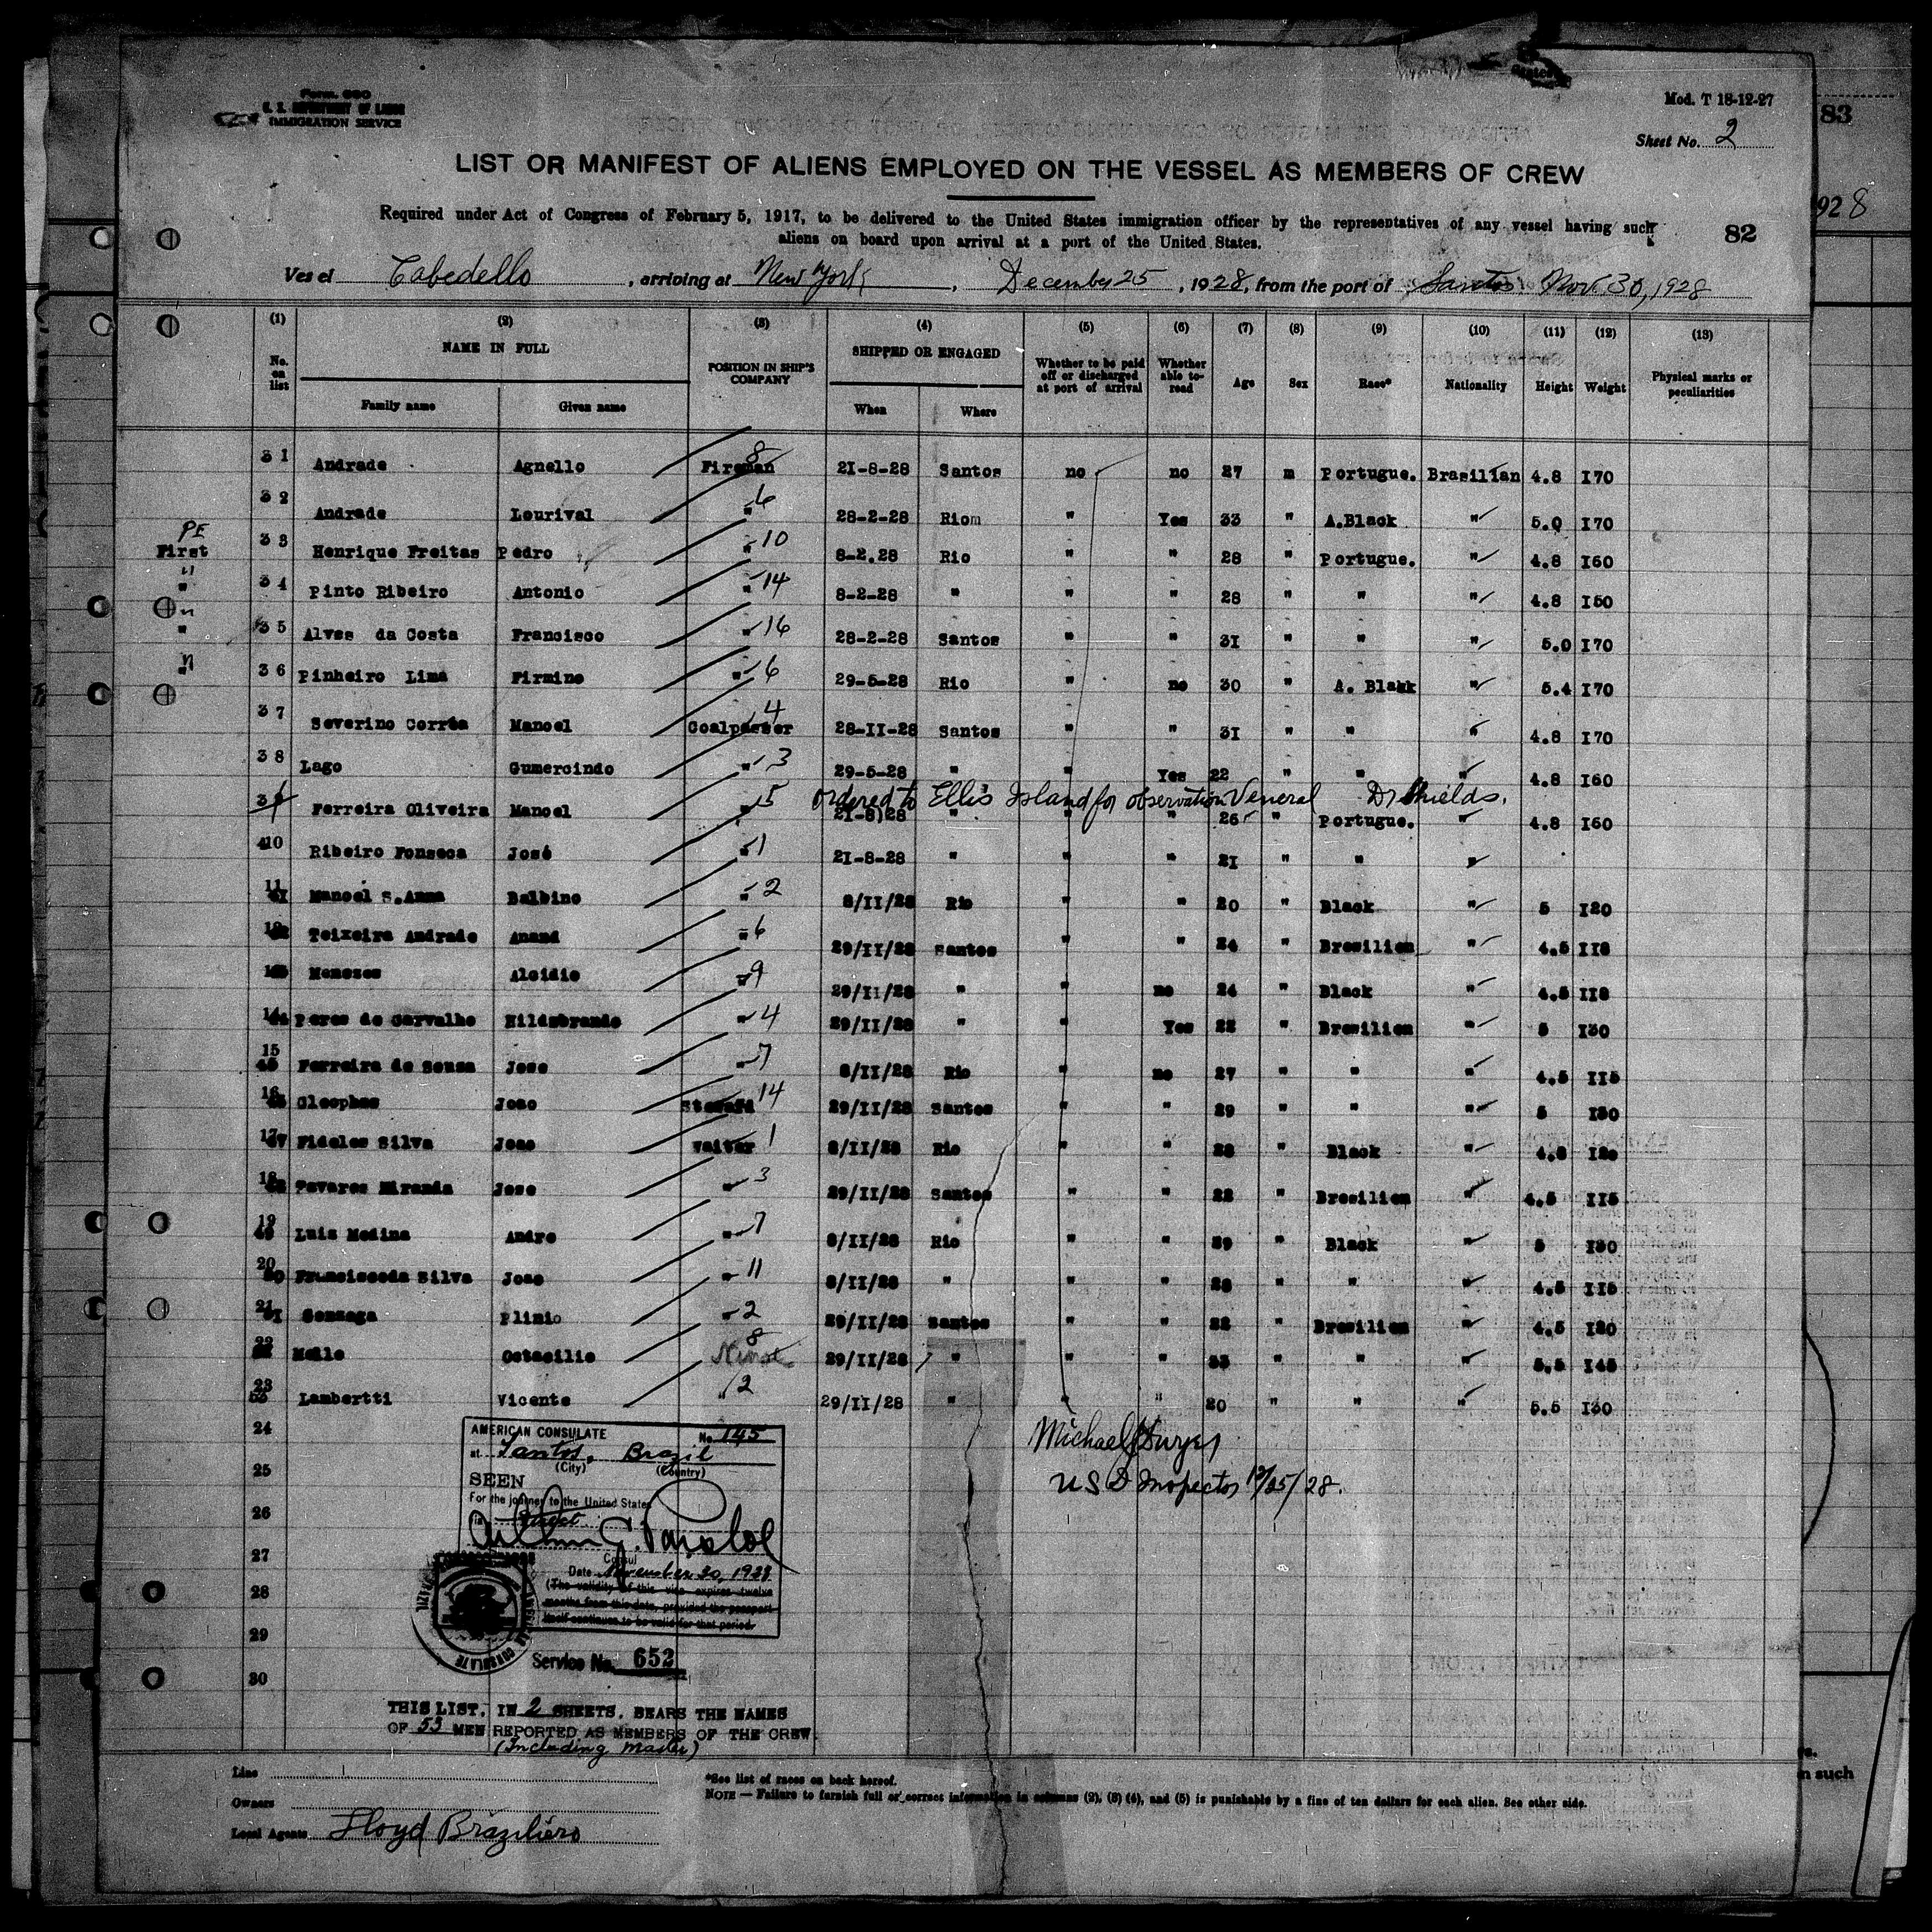 Form. 680
U. S. DEPARTMENT OF LABOR
IMMIGRATION SERVICE
Mod. T 18-12-27
83
Sheet No. 2
LIST OR MANIFEST OF ALIENS EMPLOYED ON THE VESSEL AS MEMBERS OF CREW
928
Required under Act of Congress of February 5, 1917, to be delivered to the United States immigration officer by the representatives of any vessel having such
aliens on board upon arrival at a port of the United States.
82
Vessel Cabedello, arriving at New York, December 25, 1928, from the port of Santos Nov. 30, 1928
(1) (2) (3) (4) (5) (6) (7) (8) (9) (10) (11) (12) (13)
No. on list NAME IN FULL POSITION IN SHIP'S COMPANY SHIPPED OR ENGAGED Whether to be paid off or discharged at port of arrival Whether able to read Age Sex Race* Nationality Height Weight Physical marks or peculiarities
Family name Given name When Where
31 Andrade Agnello Fireman 8 21-8-28 Santos no no 27 m Portugue. Brasilian 4.8 I70
32 Andrade Lourival " 6 28-2-28 Riom " Yes 33 " A.Black " 5.0 I70
PE
First 33 Henrique Freitas Pedro " 10 8-2.28 Rio " " 28 " Portugue. " 4.8 I60
" 34 Pinto Ribeiro Antonio " 14 8-2-28 " " " 28 " " " 4.8 I50
" 35 Alves da Costa Francisco " 16 28-2-28 Santos " " 3I " " " 5.0 I70
" 36 Pinheiro Lima Firmino " 6 29-5-28 Rio " no 30 " A. Black " 5.4 I70
37 Severino Corrêa Manoel Coalpasser 4 28-II-28 Santos " " 3I " " " 4.8 I70
38 Lago Gumercindo " 3 29-5-28 " " Yes 22 " " " 4.8 I60
Ordered to Ellis Island for observation Veneral Dr Shields.
39 Ferreira Oliveira Manoel " 5 2I-8)28 " " " 26 " Portugue. " 4.8 I60
40 Ribeiro Fonseca José " 1 2I-8-28 " " " 2I " " "
11 41 Manoel S.Anna Balbino " 2 8/II/28 Rio " " 20 " Black " 5 I20
12 42 Teixeira Andrade " 6 29/II/28 Santos " " 24 " Bresilien " 4.5 II8
13 Menezes Alcidio " 9 29/II/28 " " no 24 " Black " 4.5 II8
14 Peres de Carvalho Hildebrando " 4 29/II/28 " " Yes 22 " Bresilien " 5 I30
15 45 Ferreira de Sousa Jose " 7 8/II/28 Rio " no 27 " " " 4.5 II5
16 Cleophas Joao Steward 14 29/II/28 Santos " " 29 " " " 5 I30
17 47 Fideles Silva Joao Waiter 1 8/II/28 Rio " " 28 " Black " 4.8 I20
18 Tavares Miranda Jose " 3 29/II/28 Santos " " 22 " Bresilien " 4.5 II5
19 49 Luis Medina Andre " 7 8/II/28 Rio " " 29 " Black " 5 I30
20 50 Francisco da Silva Joao " 11 8/II/28 " " " 28 " " " 4.5 II5
21 51 Gonzaga Plinio " 2 29/II/28 Santos " " 22 " Bresilien " 4.5 I20
22 Mello Octacilio 8 29/II/28 " " " 33 " " " 5.5 I45
23 53 Lambertti Vicente 12 29/II/28 " " " 20 " " " 5.5 I30
24
AMERICAN CONSULATE No. 145
at Santos, Brazil
(City) (Country)
Michael J Dwyer
25
SEEN
US I Inspector 12/25/28.
For the journey to the United States
26
in
27
Consul
Date November 30, 1928
28
(The validity of this visa expires twelve
months from this date, provided the passport
itself continues to be valid for that period.
29
AMERICAN CONSULATE BRAZIL
Service No. 652
30
THIS LIST, IN 2 SHEETS, BEARS THE NAMES
OF 53 MEN REPORTED AS MEMBERS OF THE CREW.
(Including master)
Line
*See list of races on back hereof.
n such
NOTE — Failure to furnish full or correct information in columns (2), (3) (4), and (5) is punishable by a fine of ten dollars for each alien. See other side.
Owners
Local Agents Lloyd Braziliero